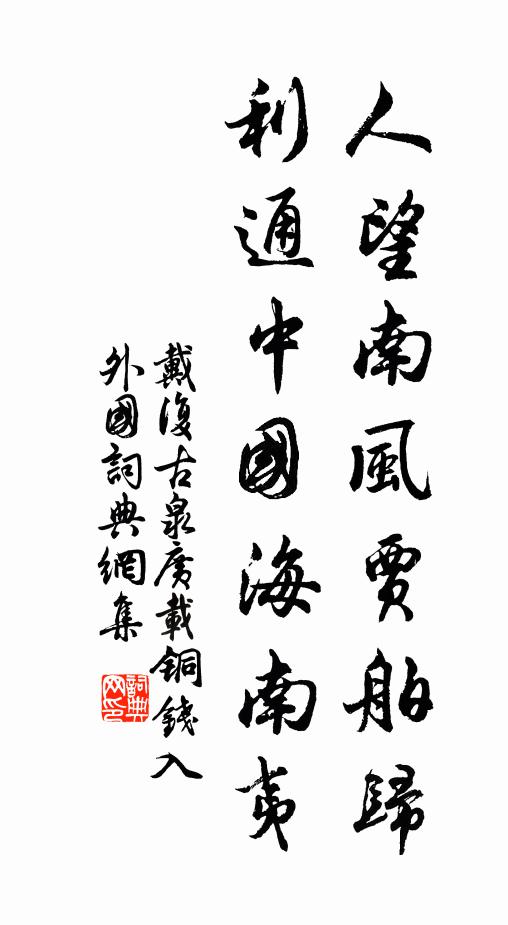 人望南風賈舶歸
利通中國海南夷
戴復古泉廣載銅錢入
外國詞典網集
詞典
网印